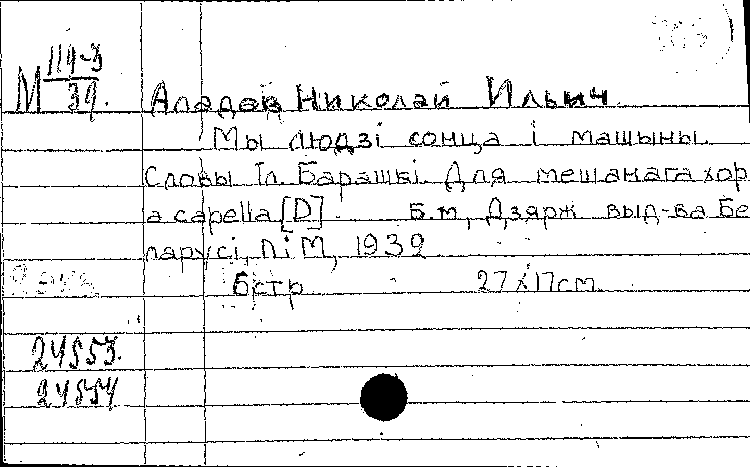 М 119-3
39.
Аладов Николай Ильич.
Мы людзі сонца і машыны.
Словы Іл. Барашкі. Для мешанага хор
a capella [D] Б.м, Дзярж выд-ва Бе
ларусі, Л і М, 1932
6стр 27х17см
24553.
24554